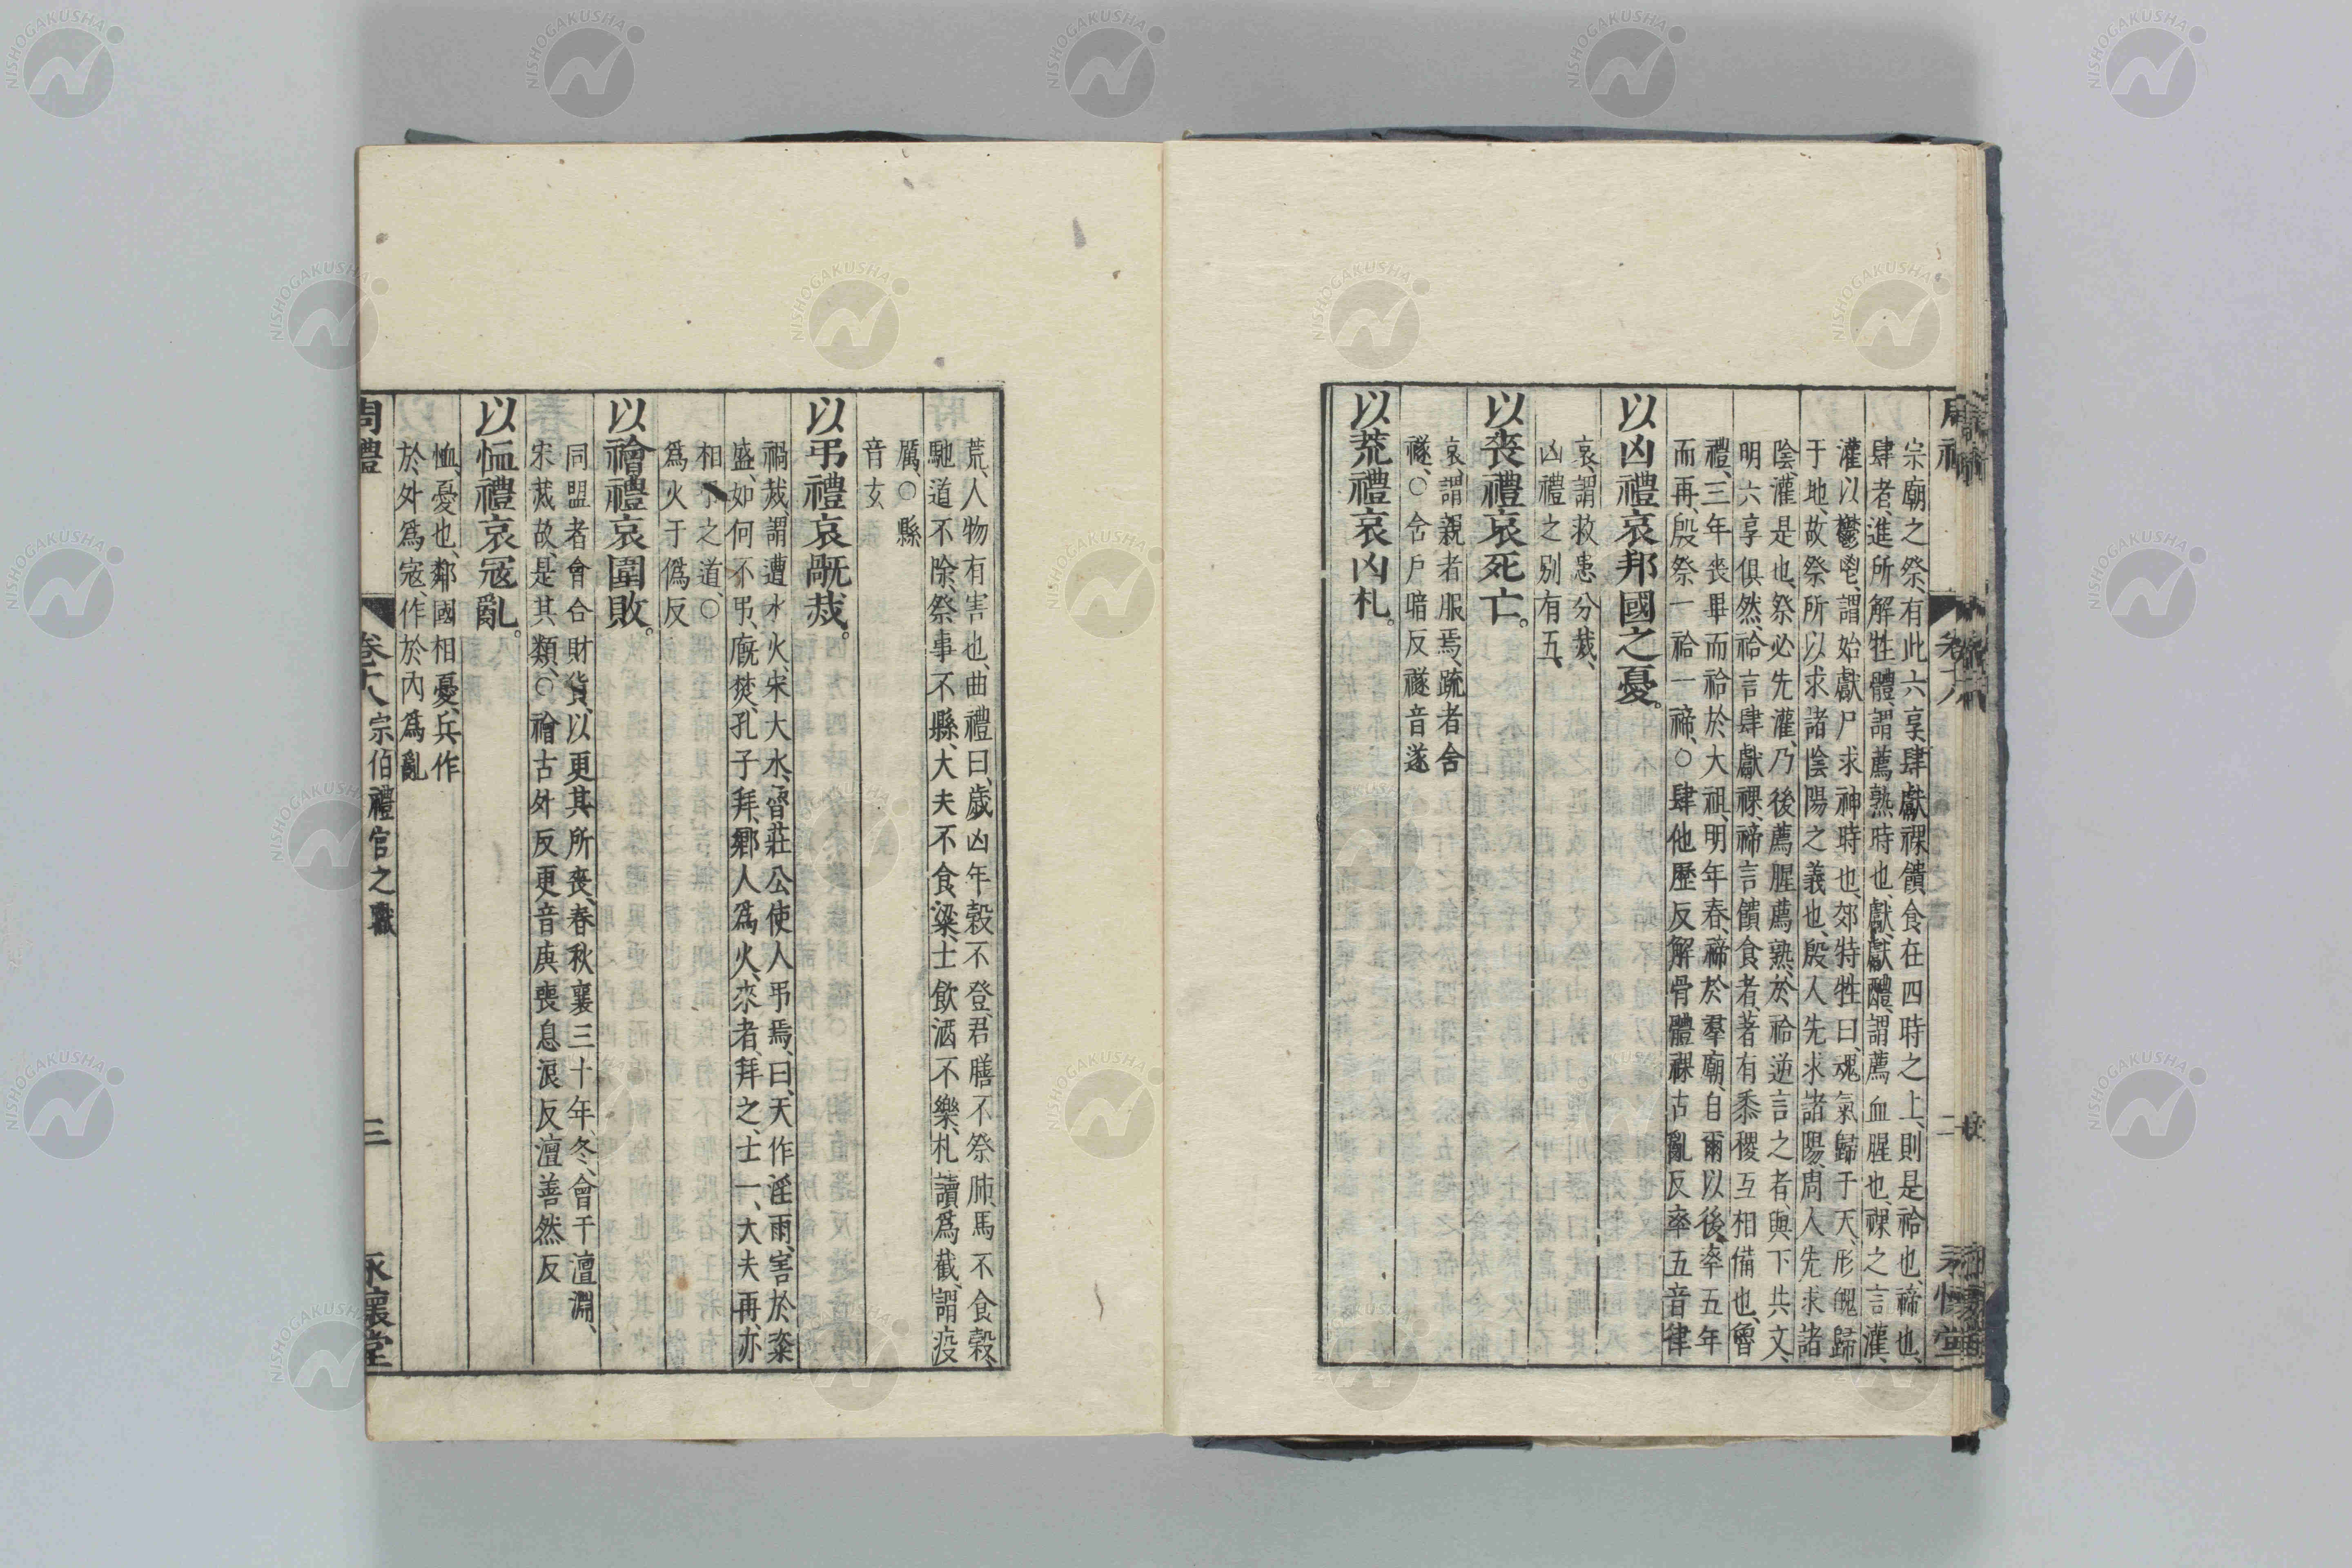 宗廟之祭、有此六享、肆獻祼饋食、在四時之上、則是祫也、禘也、
肆者、進所解牲體、謂薦熟時也、獻、獻醴、謂薦血腥也、祼之言灌、
灌以鬱鬯、謂始獻尸求神時也、郊特牲曰、魂氣歸于天、形魄歸
于地、故祭所以求諸陰陽之義也、殷人先求諸陽、周人先求諸
陰、灌是也、祭必先灌、乃後薦腥薦熟、於祫逆言之者、與下共文、
明六享俱然、祫言肆獻祼、禘言饋食者、著有黍稷互相備也、魯
禮、三年喪畢而祫於大祖、明年春、禘於羣廟、自爾以後、率五年
而再、殷祭一祫一禘、○肆他歷反解骨體祼古亂反率五音律
以凶禮哀邦國之憂。
哀、謂救患分烖、
凶禮之別有五、
以喪禮哀死亡。
哀、謂親者服焉、疏者舍
襚、○含戶暗反襚音遂
以荒禮哀凶札。
荒、人物有害也、曲禮曰、歲凶年穀不登、君膳不祭肺、馬不食穀、
馳道不除、祭事不縣、大夫不食粱、士飲酒不樂、札讀爲截、謂疫
厲、○縣
音玄
以弔禮哀禍烖。
禍烖、謂遭水火、宋大水、魯莊公使人弔焉、曰、天作淫雨、害於粢
盛、如何不弔、廐焚、孔子拜、鄉人爲火、來者、拜之、士一、大夫再、亦
相弔之道、○
爲火于僞反
以禬禮哀圍敗。
同盟者會合財貨、以更其所喪、春秋襄三十年、冬、會于澶淵、
宋烖故、是其類、○禬古外反更音庚喪息浪反澶善然反
以恤禮哀寇亂。
恤、憂也、鄰國相憂、兵作
於外爲寇、作於內爲亂
周禮 卷十八 宗伯禮官之職 三 永懷堂